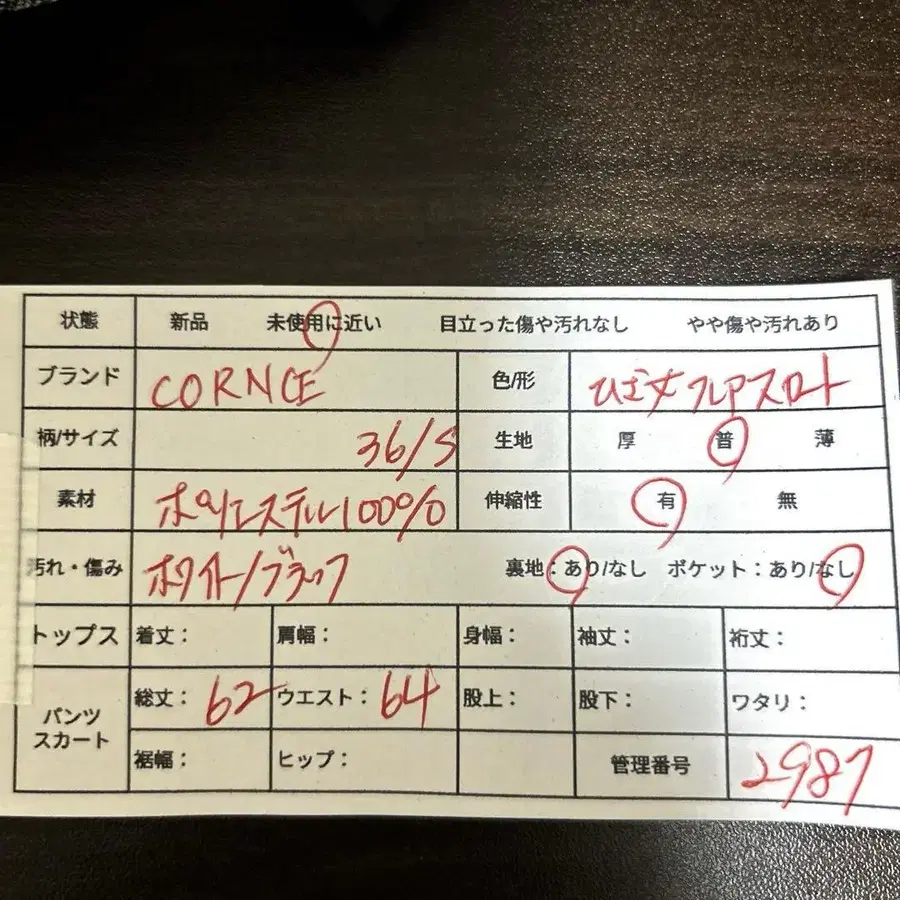 状態 新品 未使用に近い 目立った傷や汚れなし やや傷や汚れあり
ブランド CORNCE 色/形 ひざ丈フレアスカート
柄/サイズ 36/S 生地 厚 普 薄
素材 ポリエステル100% 伸縮性 有 無
汚れ・傷み ホワイト/ブラック 裏地：あり/なし ポケット：あり/なし
トップス 着丈： 肩幅： 身幅： 袖丈： 裄丈：
パンツ スカート 総丈：62 ウエスト：64 股上： 股下： ワタリ：
裾幅： ヒップ： 管理番号 2987